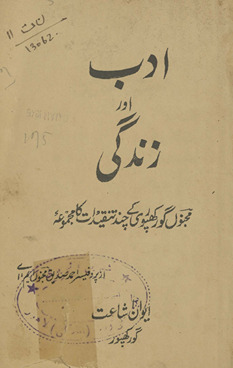 ن ث ۱۱
13062.
ادب
اور
زندگی
مجنوں گورکھپوری کے چند تنقیدات کا مجموعہ
از پروفیسر احمد صدیق مجنوں ایم اے
ایوان اشاعت
گورکھپور